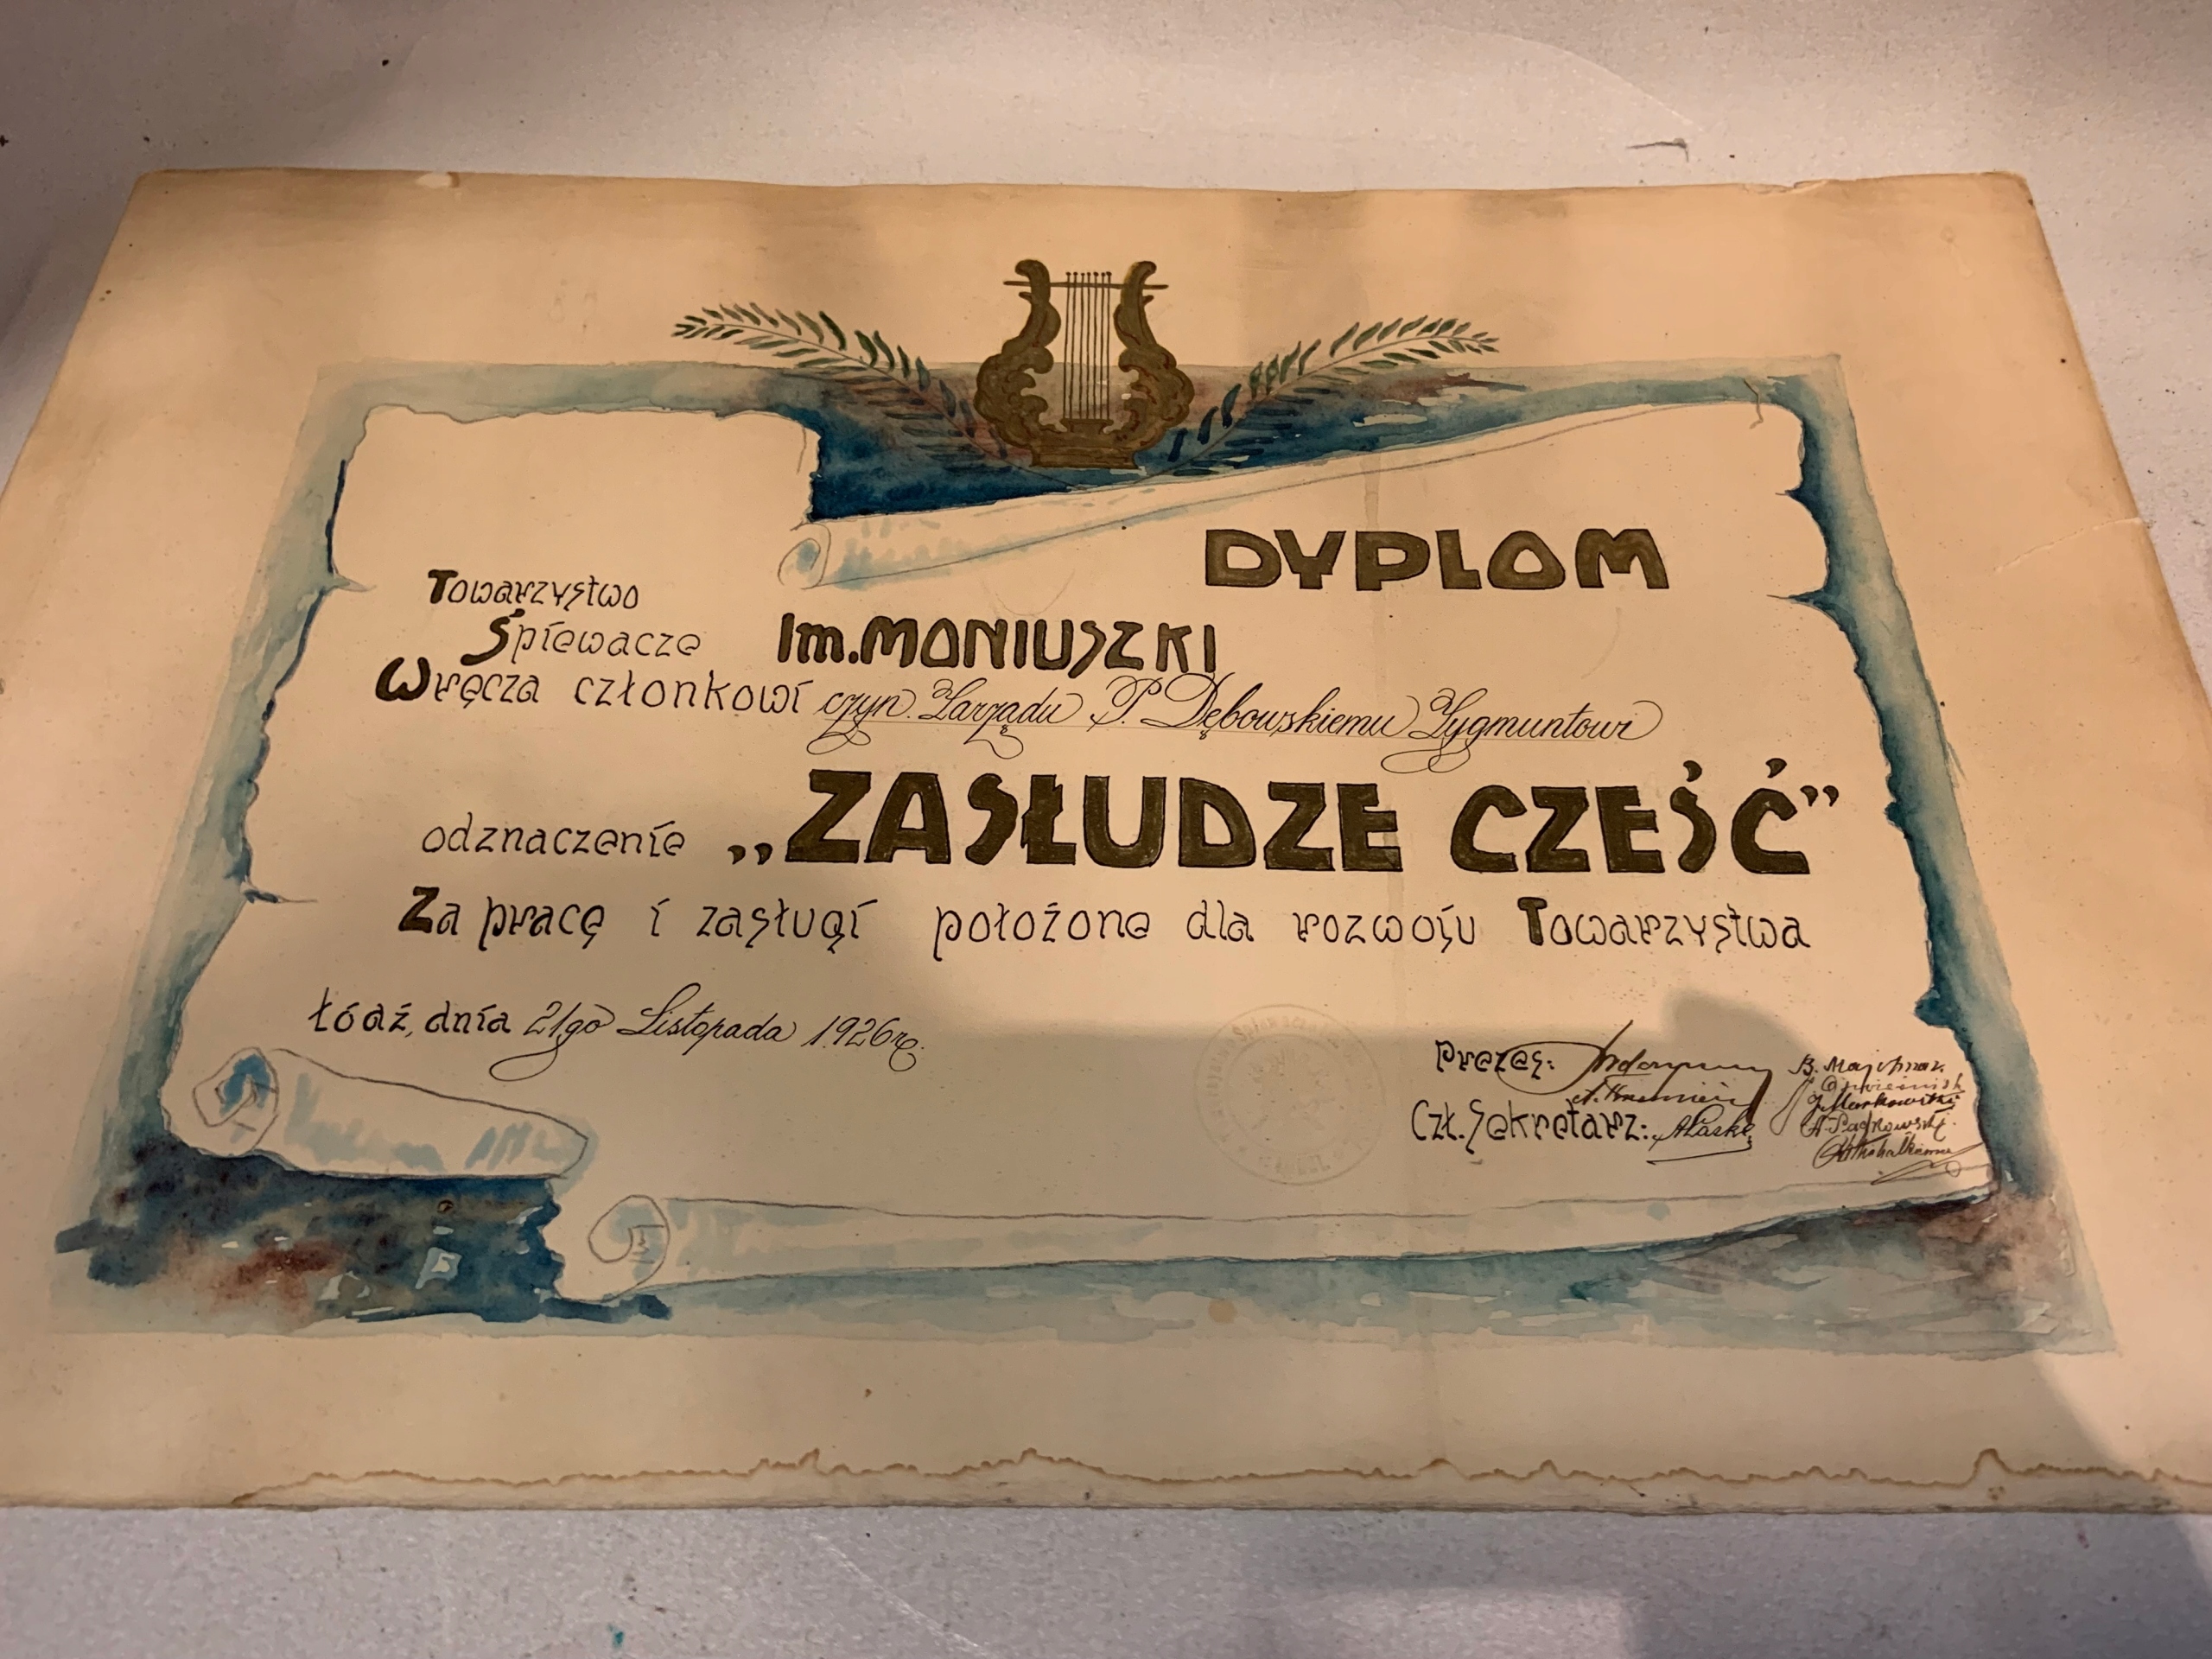 DYPLOM
Towarzystwo
Śpiewacze Im. MONIUSZKI
Wręcza członkowi czyn. Zarządu P. Dębowskiemu Zygmuntowi
odznaczenie „ZASŁUDZE CZEŚĆ”
Za pracę i zasługi położone dla rozwoju Towarzystwa
Łódź, dnia 21go Listopada 1926r.
Prezes:
Czł. Sekretarz: